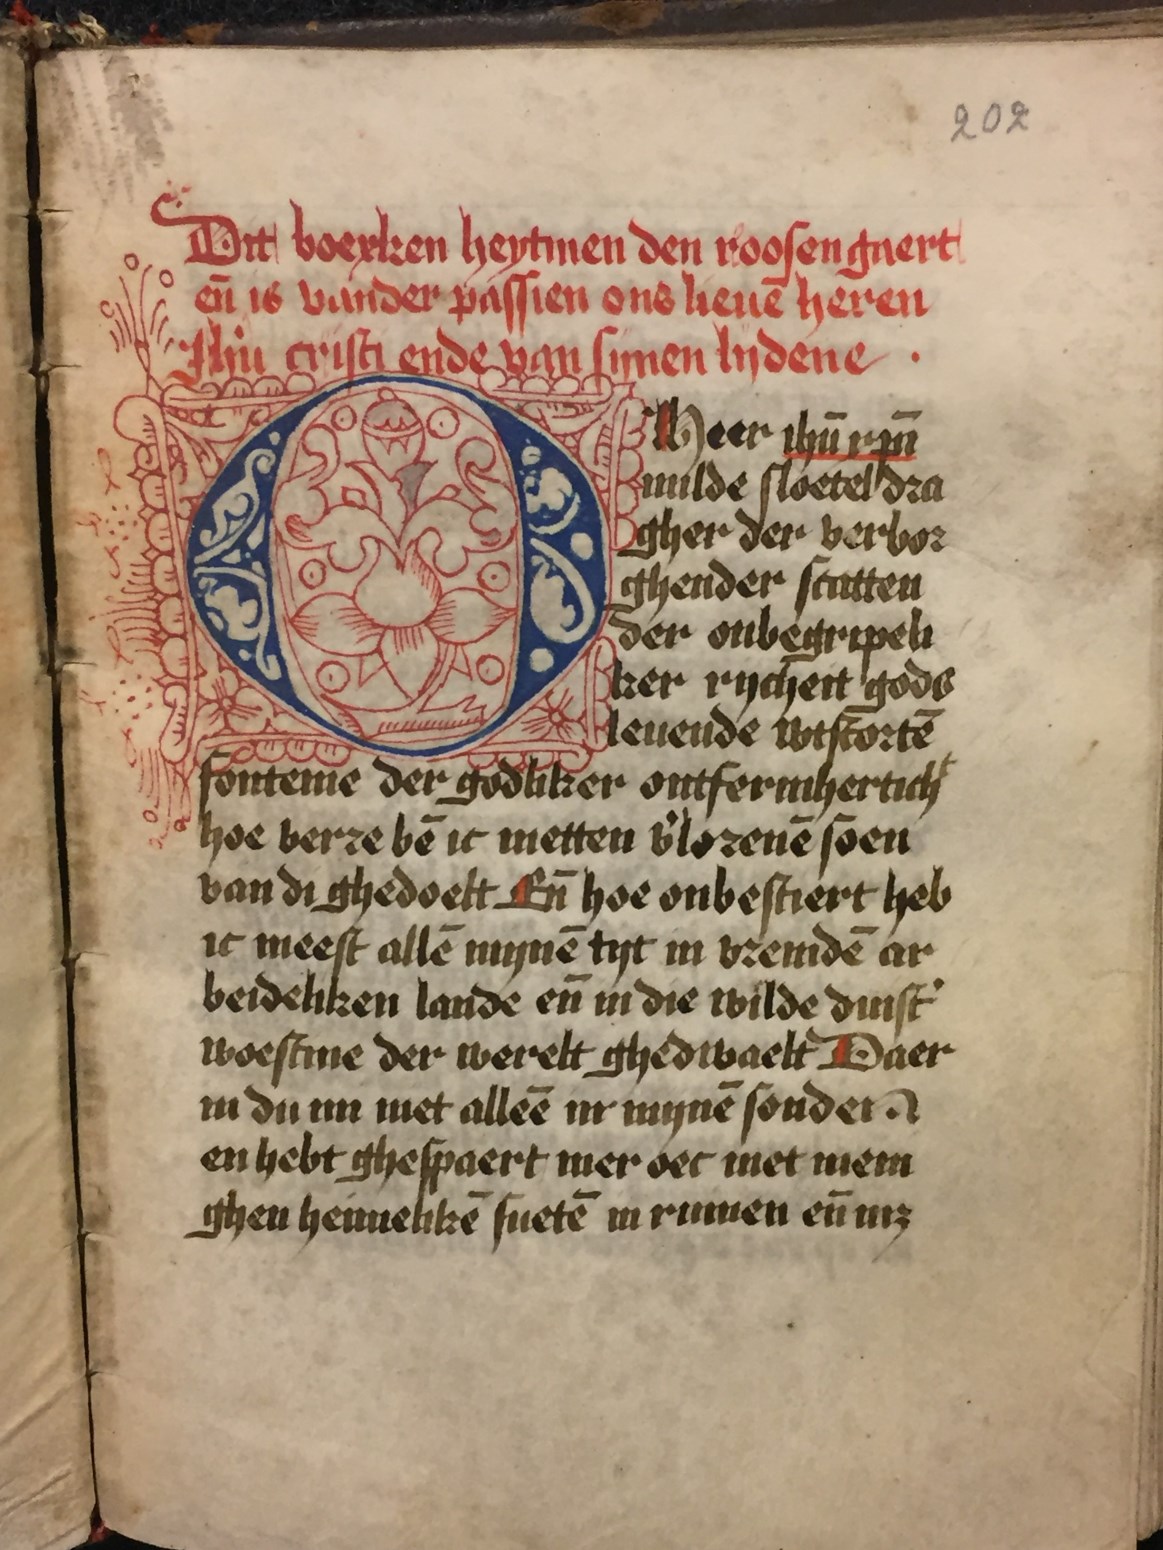 202
Dit boexken heytmen den roosengaert
en̄ is vander passien ons lieuē heren
Jhū cristi ende van sijnen lijdene .
O Heer ihū xpē
milde sloetel dra
gher der verbor
ghender scatten
der onbegripeli
ker rijcheit gods
leuende wtstortē
fonteine der godliker ontfermhertich
hoe verre bē ic metten v'lorenē soen
van di ghedoelt En̄ hoe onbestiert heb
ic meest allē mijnē tijt in vremdē ar
beideliken lande en̄ in die wilde duist'
woestine der werelt ghedwaelt Daer
in du mi niet alleē in mijnē sonden
en hebt ghespaert mer oec met mein
ghen heimelikē suetē in rumen en̄